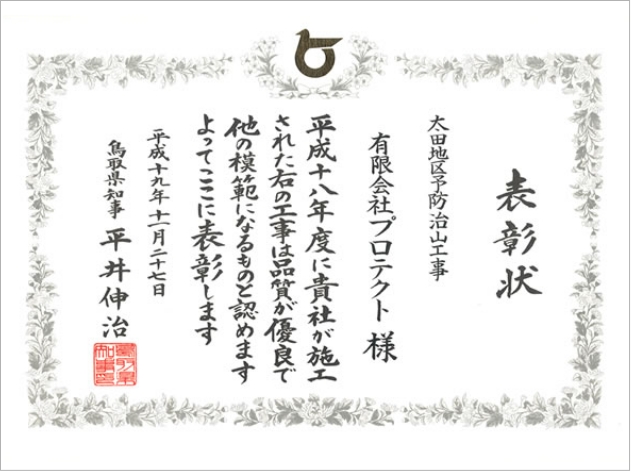 表彰状
太田地区予防治山工事
有限会社プロテクト 様
平成十八年度に貴社が施工
された右の工事は品質が優良で
他の模範になるものと認めます
よってここに表彰します
平成十九年十一月二十七日
鳥取県知事 平井伸治